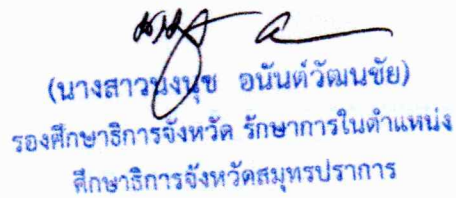 (นางสาวนงนุช อนันต์วัฒนชัย)
รองศึกษาธิการจังหวัด รักษาการในตำแหน่ง
ศึกษาธิการจังหวัดสมุทรปราการ